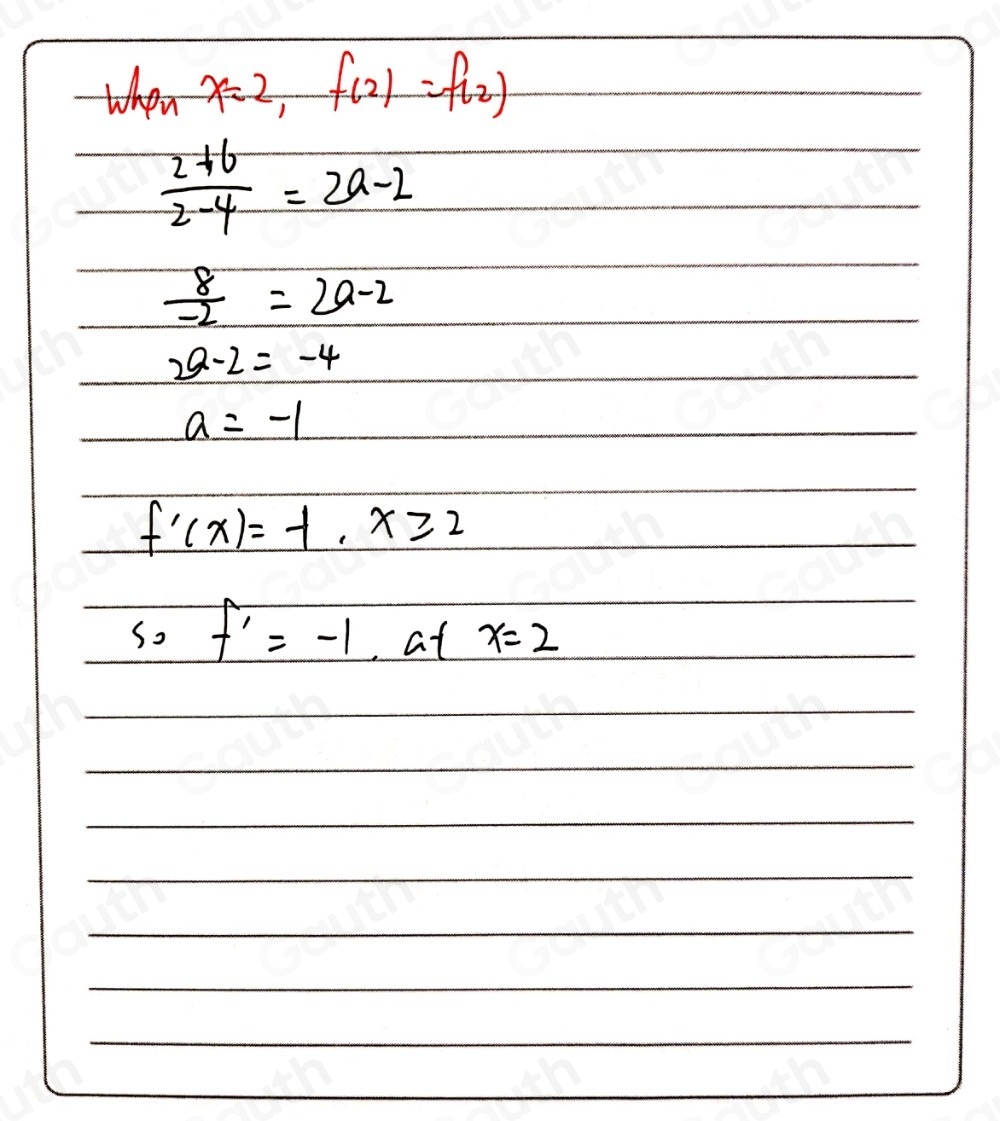 when x=2, f(2) =f(2)
2+6/2-4 = 2a-2
8/-2 = 2a-2
2a-2= -4
a= -1
f'(x)= -1, x≥2
so f' = -1. at x=2